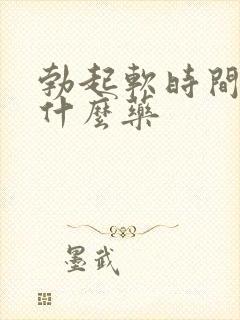 勃起軟時間
什麼藥
墨武